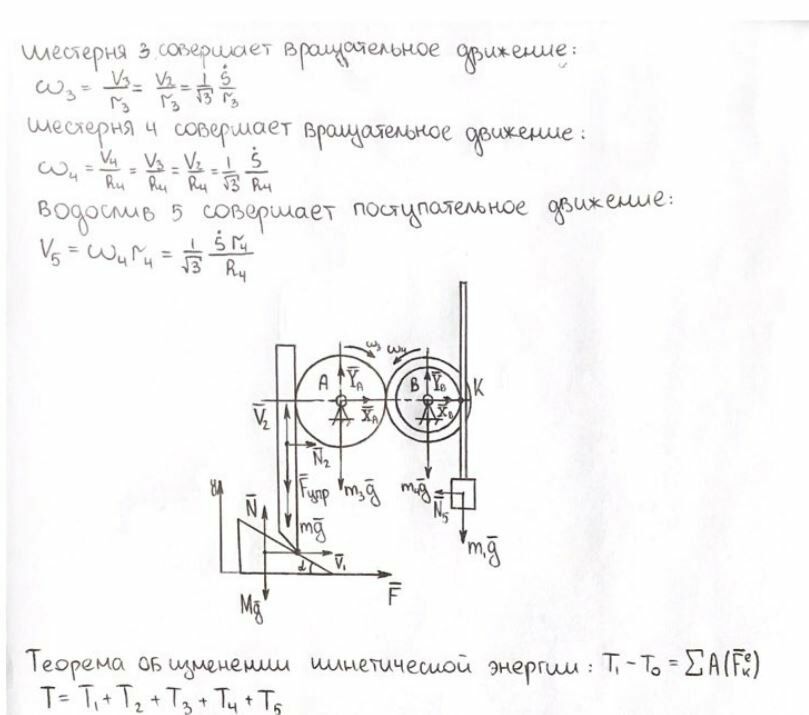 шестерня 3 совершает вращательное движение:
ω₃ = V₃/r₃ = V₂/r₃ = 1/√3 Ṡ/r₃
шестерня 4 совершает вращательное движение:
ω₄ = V₄/R₄ = V₃/R₄ = V₂/R₄ = 1/√3 Ṡ/R₄
Водослив 5 совершает поступательное движение:
V₅ = ω₄ r₄ = 1/√3 Ṡ r₄/R₄
ω₃ ω₄
A Y̅_A B Y̅_B K
V̅₂ X̅_A X̅_B
N̅₂
F̅упр m₃g̅ m₄g̅ N̅₅
y N̅ mg̅ m₁g̅
α V̅₁
Mg̅ F̅
Теорема об изменении кинетической энергии: T₁ - T₀ = ΣA(F̅ₖᵉ)
T = T₁ + T₂ + T₃ + T₄ + T₅